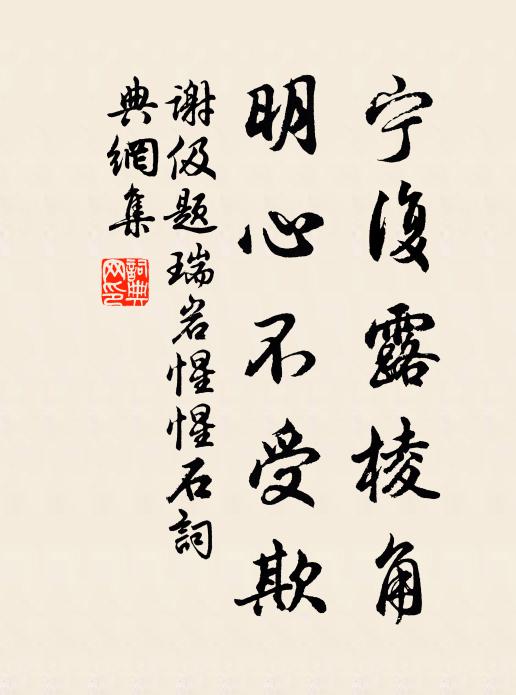 宁复露棱角
明心不受欺
谢伋题瑞岩惺惺石詞
典網集
詞典网印